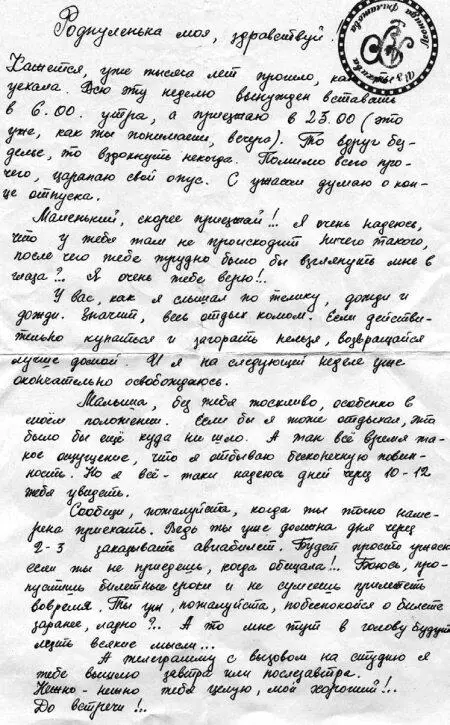 Роднуленька моя, здравствуй.
Из архива
Леонида Филатова
Кажется, уже тысяча лет прошло, как ты
уехала. Всю эту неделю вынужден вставать
в 6.00. утра, а приезжаю в 23.00 (это
уже, как ты понимаешь, вечера). То вдруг без-
делье, то вздохнуть некогда. Помимо всего про-
чего, царапаю свой опус. С ужасом думаю о кон-
це отпуска.
Маленький, скорее приезжай!.. Я очень надеюсь,
что у тебя там не происходит ничего такого,
после чего тебе трудно было бы взглянуть мне в
глаза?.. Я очень тебе верю!..
У вас, как я слышал по телику, дожди и
дожди. Значит, весь отдых комом. Если действи-
тельно купаться и загорать нельзя, возвращайся
лучше домой. И я на следующей неделе уже
окончательно освобождаюсь.
Малыша, без тебя тоскливо, особенно в
моём положении. Если бы я тоже отдыхал, это
было бы ещё куда ни шло. А так всё время та-
кое ощущение, что я отбываю бесконечную повин-
ность. Но я всё-таки надеюсь дней через 10-12
тебя увидеть.
Сообщи, пожалуйста, когда ты точно наме-
рена приехать. Ведь ты уже должна дня через
2-3 заказывать авиабилет. Будет просто ужасно
если ты не приедешь, когда обещала!.. Боюсь, про-
пустишь билетные сроки и не сумеешь прилететь
вовремя. Ты уж, пожалуйста, побеспокойся о билете
заранее, ладно?.. А то мне тут в голову будут
лезть всякие мысли...
А телеграмму с вызовом на студию я
тебе вышлю завтра или послезавтра.
Нежно-нежно тебя целую, мой хороший!..
До встречи!..